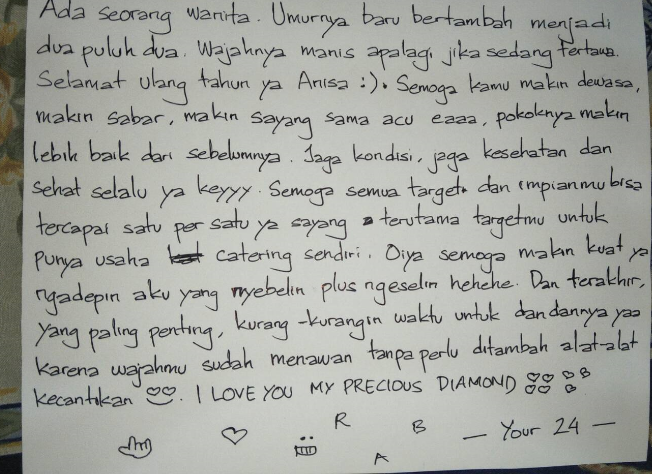 Ada seorang wanita. Umurnya baru bertambah menjadi
dua puluh dua. Wajahnya manis apalagi jika sedang tertawa.
Selamat ulang tahun ya Anisa :). Semoga kamu makin dewasa,
makin sabar, makin sayang sama acu eaaa, pokoknya makin
lebih baik dari sebelumnya. Jaga kondisi, jaga kesehatan dan
sehat selalu ya keyyy. Semoga semua target dan impianmu bisa
tercapai satu per satu ya sayang terutama targetmu untuk
punya usaha catering sendiri. Oiya semoga makin kuat ya
ngadepin aku yang nyebelin plus ngeselin hehehe. Dan terakhir,
yang paling penting, kurang-kurangin waktu untuk dandannya yaa
karena wajahmu sudah menawan tanpa perlu ditambah alat-alat
kecantikan. I LOVE YOU MY PRECIOUS DIAMOND
R B — Your 24 —
A